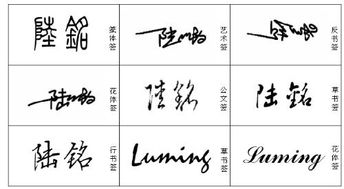 陸銘 篆体签
陆铭 艺术签
陆铭 反书签
陆铭 花体签
陸銘 公文签
陆銘 草书签
陆铭 行书签
Luming 草书签
Luming 花体签